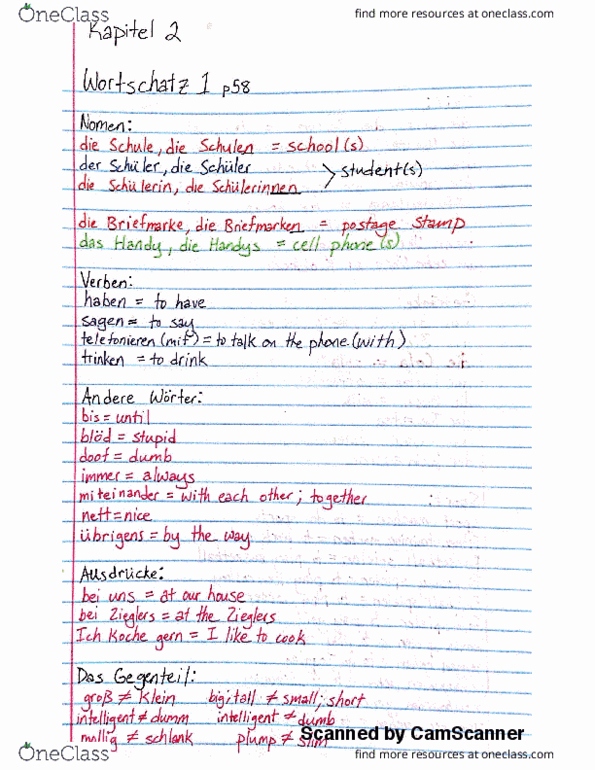 OneClass
find more resources at oneclass.com
Kapitel 2
Wortschatz 1 p58
Nomen:
die Schule, die Schulen = school(s)
der Schüler, die Schüler
die Schülerin, die Schülerinnen
> student(s)
die Briefmarke, die Briefmarken = postage stamp
das Handy, die Handys = cell phone(s)
Verben:
haben = to have
sagen = to say
telefonieren (mit) = to talk on the phone (with)
trinken = to drink
Andere Wörter:
bis = until
blöd = stupid
doof = dumb
immer = always
miteinander = with each other; together
nett = nice
übrigens = by the way
Ausdrücke:
bei uns = at our house
bei Zieglers = at the Zieglers
Ich Koche gern = I like to cook
Das Gegenteil:
groß ≠ klein big; tall ≠ small; short
intelligent ≠ dumm intelligent ≠ dumb
mollig ≠ schlank plump ≠ slim
Scanned by CamScanner
OneClass
find more resources at oneclass.com